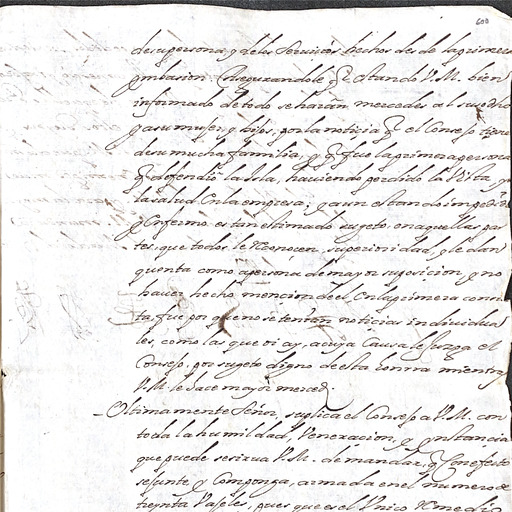 600
de su persona, y de los servicios hechos desde la primera
ynbasion. Asegurandole q̃ estando V.M. bien
informado de todo se harán mercedes al susodho
y a su muger, y hijos, por la noticia q̃ el Consejo tiene
de su mucha familia, y q̃ fue la primera persona
q̃ defendió la Isla, haviendo perdido la vista, y
la salud en la empresa; y aun estando impedido
y enfermo es tan estimado sugeto en aquellas par
tes, que todos le reconocen superioridad, y le dan
quenta como a persona de mayor suposicion, y no
haver hecho mencion del en la primera consul
ta, fue por que no se tenian noticias individua
les, como las que oi ay, a cuya causa le juzga el
Consejo por sugeto digno de esta honrra mientras
V.M. le hace mayor merced.
Ultimamente Señor, suplica el Consejo a V.M. con
toda la humildad, veneracion, y ynstancia
que puede se sirva V.M. de mandar, q̃ con efecto
se junte y componga, armada en el numero de
treynta vajeles, pues que es el unico remedio